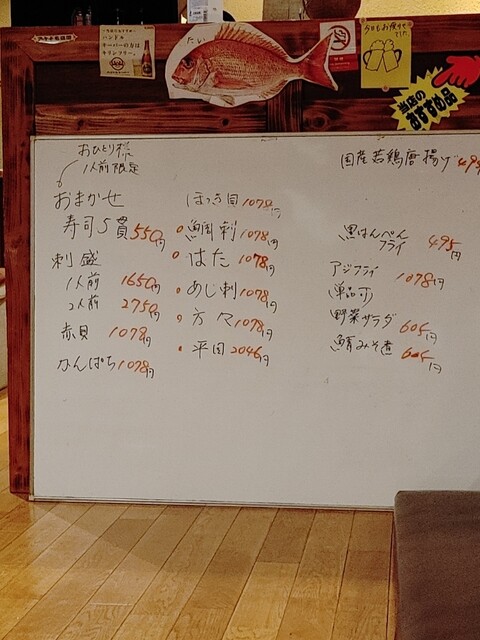 たい
ハンドル
キーパーの方は
キリンフリー。
今日もお疲れさまでした。
当店の
おすすめ品
おひとり様
1人前限定
おまかせ
寿司5貫 550円
刺盛
1人前 1650円
2人前 2750円
赤貝 1078円
かんぱち 1078円
ほっき貝 1078円
・鯛刺 1078円
・はた 1078円
・めじ刺 1078円
・方々 1078円
・平目 2046円
国産若鶏唐揚げ
黒はんぺん
フライ 495円
アジフライ 1078円
(単品可)
野菜サラダ 605円
鯖みそ煮 605円